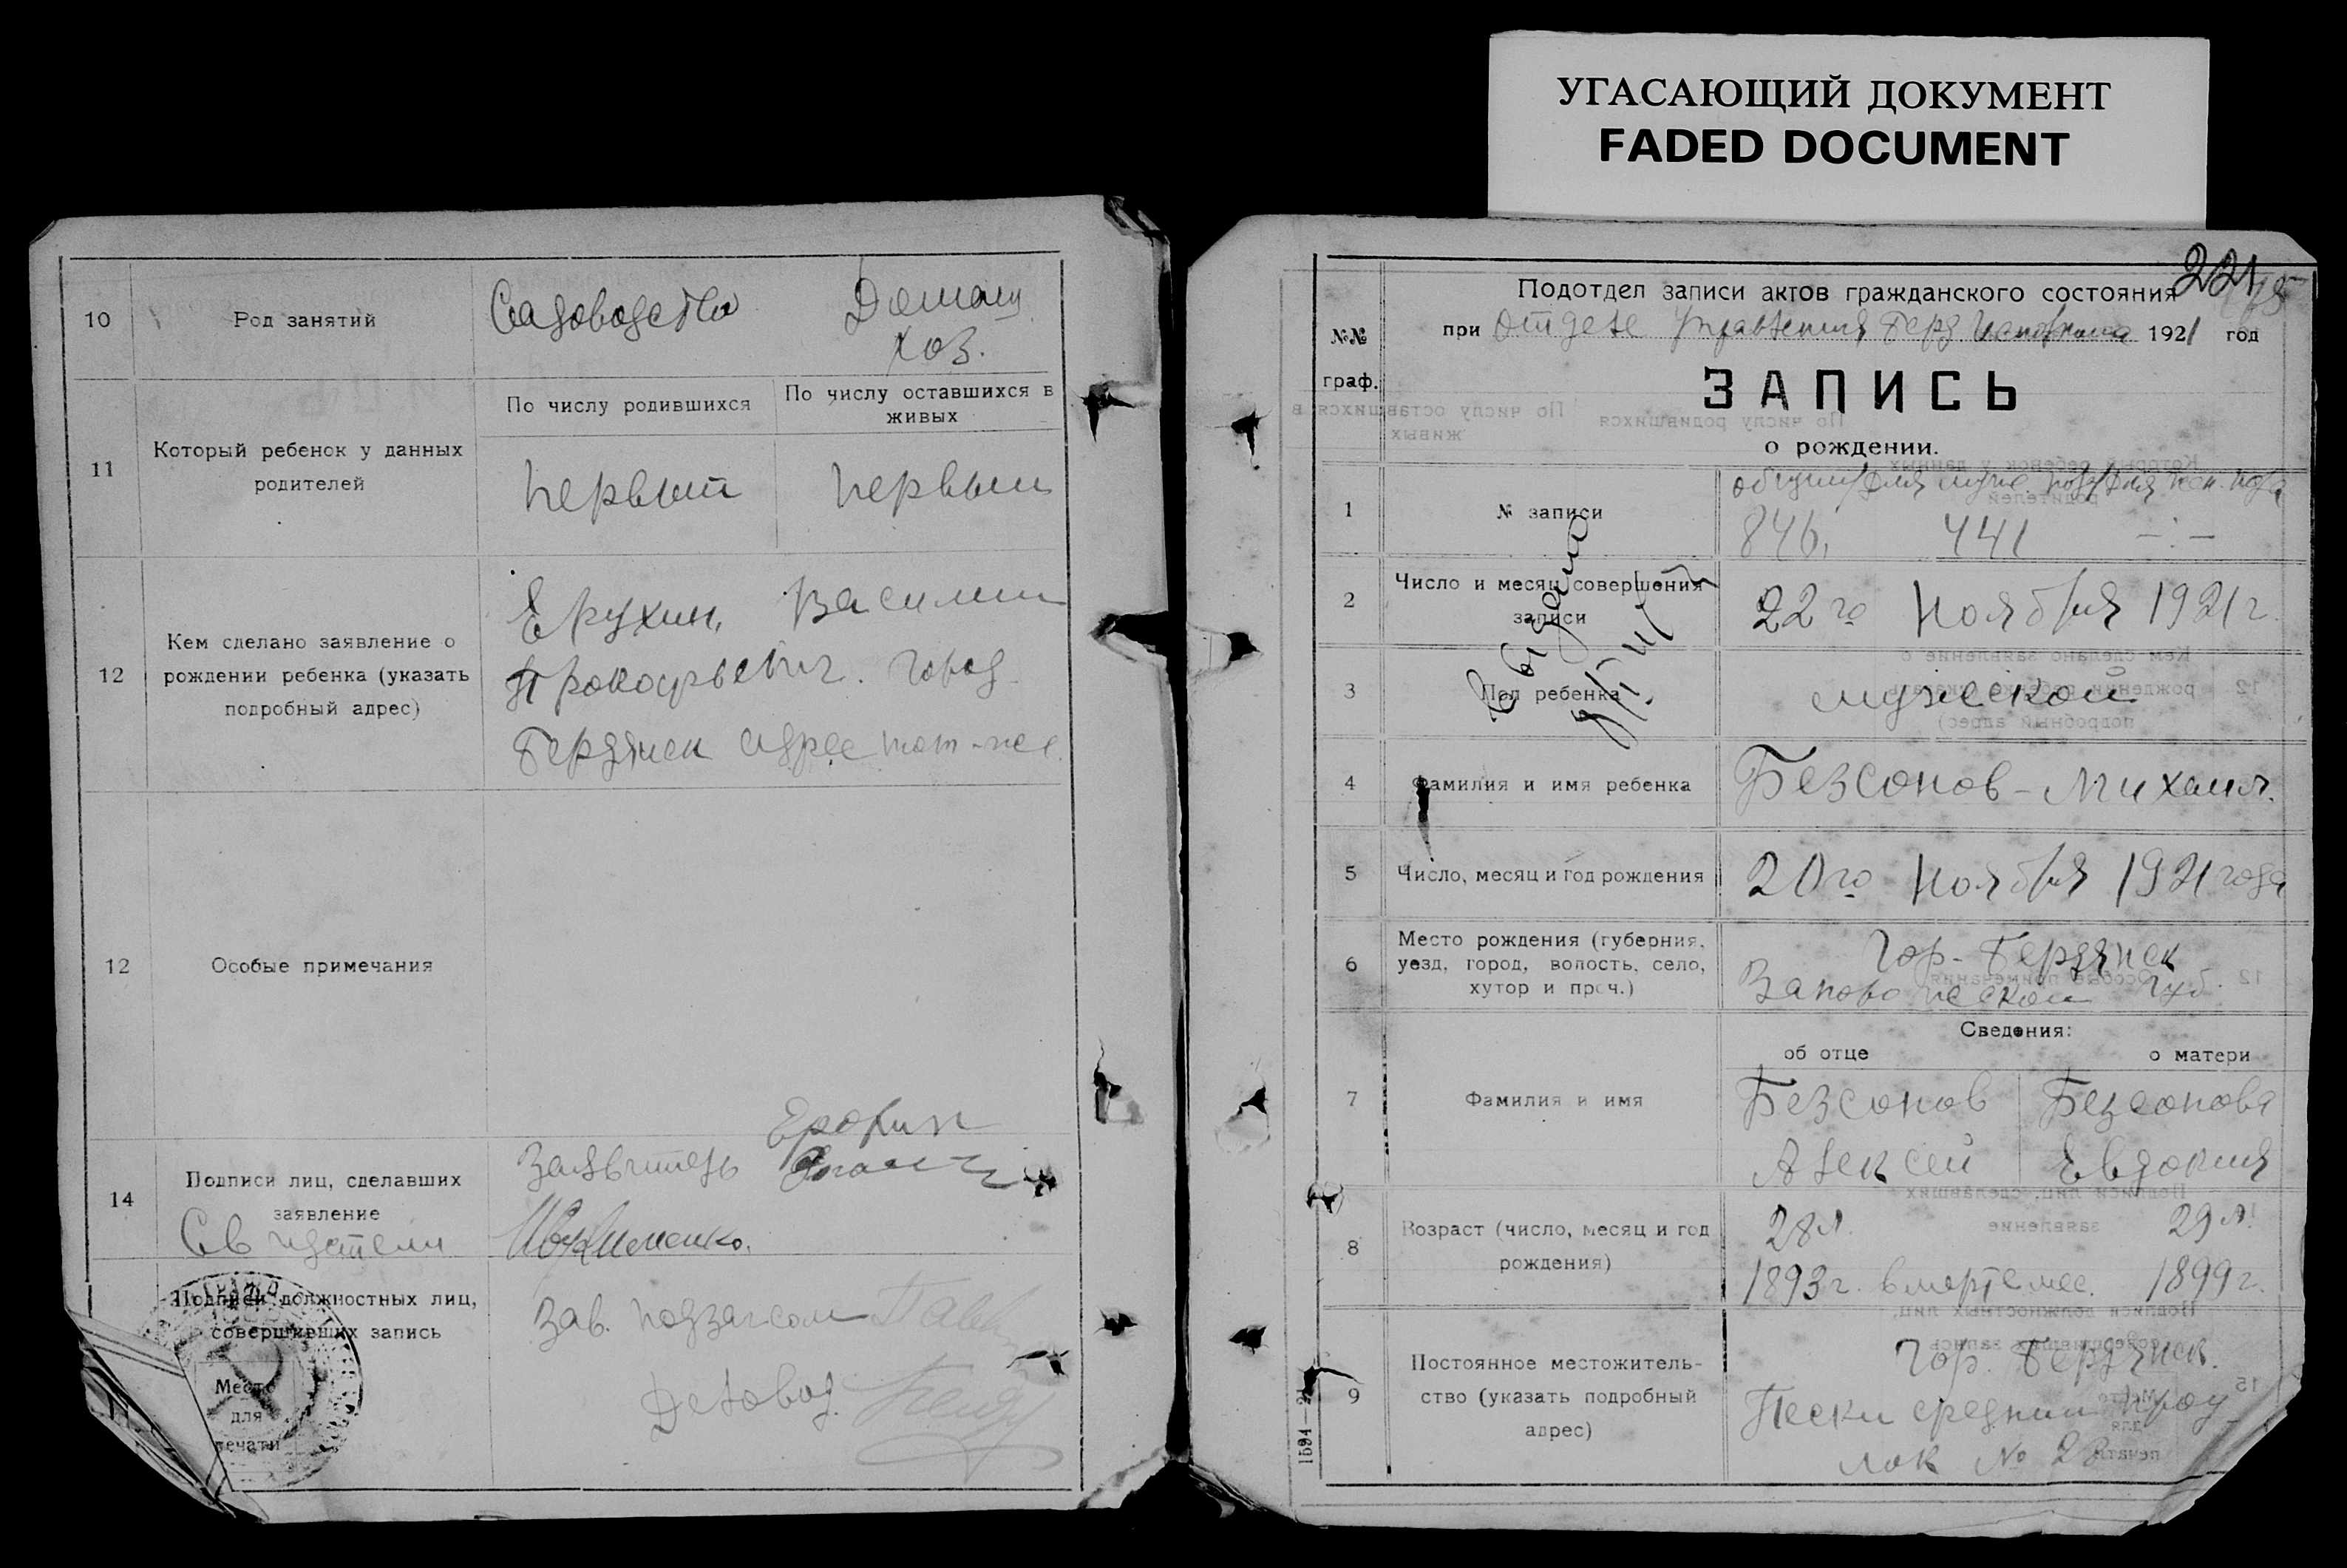 УГАСАЮЩИЙ ДОКУМЕНТ
FADED DOCUMENT
10
Род занятий
Садоводство
Домаш.
хоз.
11
Который ребенок у данных
родителей
По числу родившихся
По числу оставшихся в
живых
первый
первый
12
Кем сделано заявление о
рождении ребенка (указать
подробный адрес)
Ерухин, Василий
Прокофьевич. город
Бердянск адрес тот-же.
12
Особые примечания
14
Подписи лиц, сделавших
заявление
Свидетели
Заявитель
Подписи должностных лиц,
совершивших запись
Место
для
печати
Зав. подзагсом
Деловод.
221
№№
граф.
Подотдел записи актов гражданского состояния
при отделе Управления Берд. Исполкома 1921 год
ЗАПИСЬ
о рождении.
1
№ записи
общий/для муж. пола/для жен. пола
846, 441 -:-
2
Число и месяц совершения
записи
22го ноября 1921 г.
3
Пол ребенка
мужской
Выдано
4
Фамилия и имя ребенка
Безсонов - Михаил.
5
Число, месяц и год рождения
20го ноября 1921 года
6
Место рождения (губерния,
уезд, город, волость, село,
хутор и проч.)
Гор-Бердянск
губ.
Сведения:
об отце
о матери
7
Фамилия и имя
Безсонов
Алексей
Безсонова
Евдокия
8
Возраст (число, месяц и год
рождения)
28 л.
29 л.
1893 г. в марте мес.
1899 г.
9
Постоянное местожитель-
ство (указать подробный
адрес)
Гор. Бердянск.
Пески средний проу-
лок № 28
1594—21